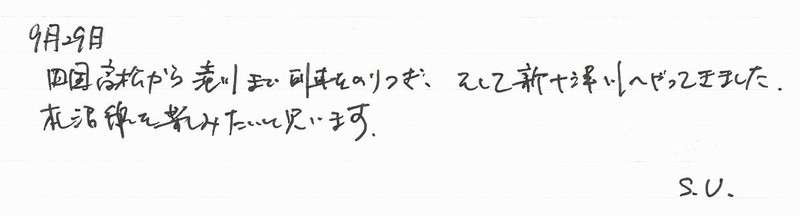 9月29日
四国高松から滝川まで列車をのりつぎ、そして新十津川へやってきました.
札沼線を楽しみたいと思います.
S.U.